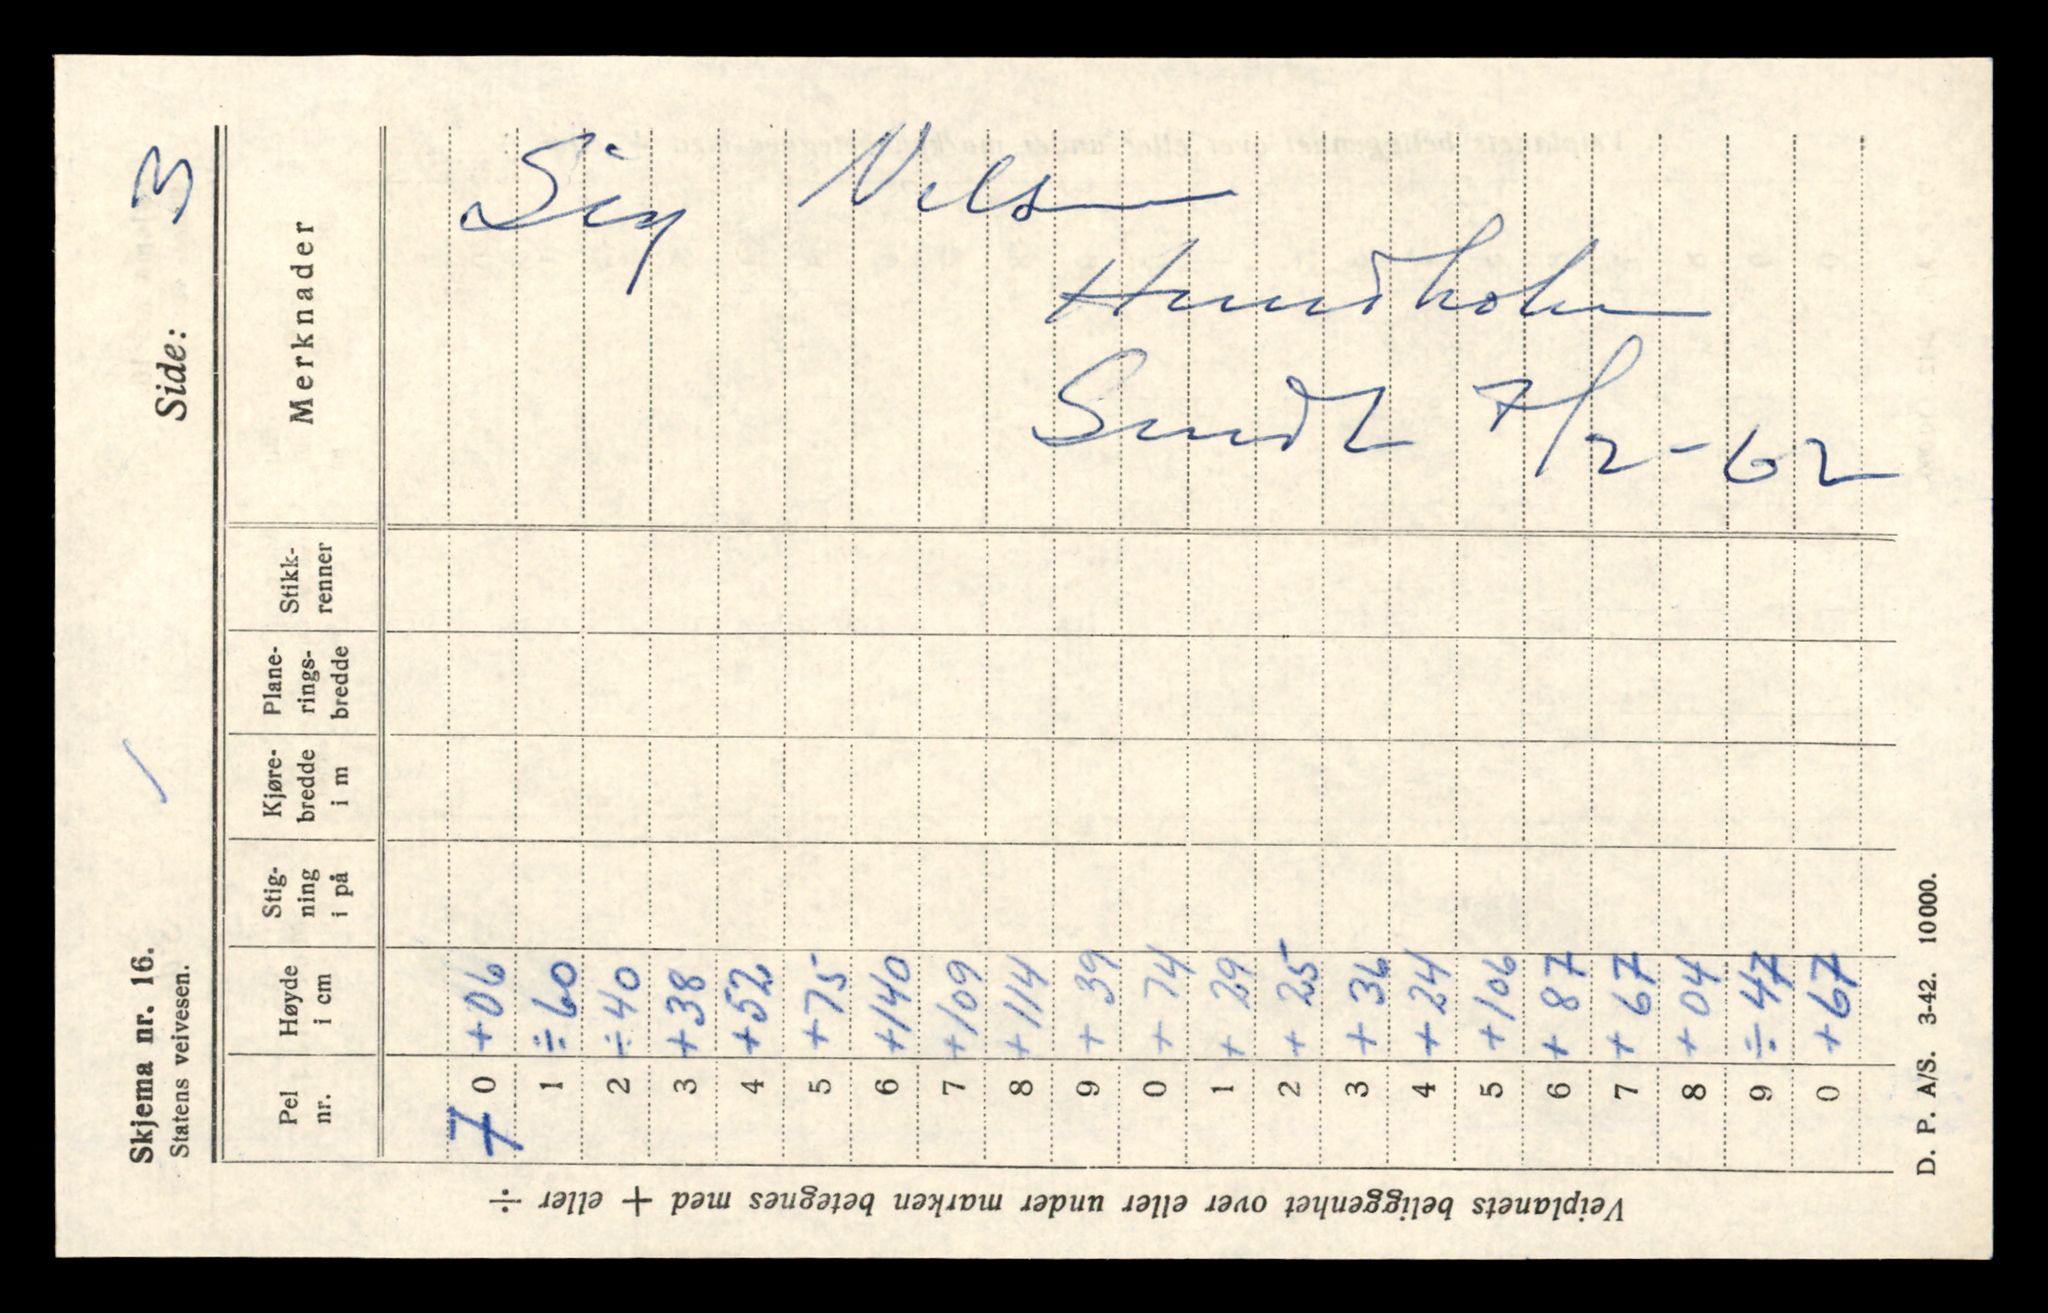 Skjema nr. 16.
Statens veivesen.
Side: 3
Pel nr. Høyde i cm Stig- ning i på Kjøre- bredde i m Plane- rings- bredde Stikk- renner Merknader
7 0 +06
1 ÷60
2 ÷40
3 +38
4 +52
5 +75
6 +140
7 +109
8 +114
9 +39
0 +74
1 +29
2 +25
3 +36
4 +24
5 +106
6 +87
7 +67
8 +04
9 ÷47
0 +67
Sig Nelsen
Hundholm
Sendt 7/2-62
Veiplanets beliggenhet over eller under marken betegnes med + eller ÷
D. P. A/S. 3-42. 10000.